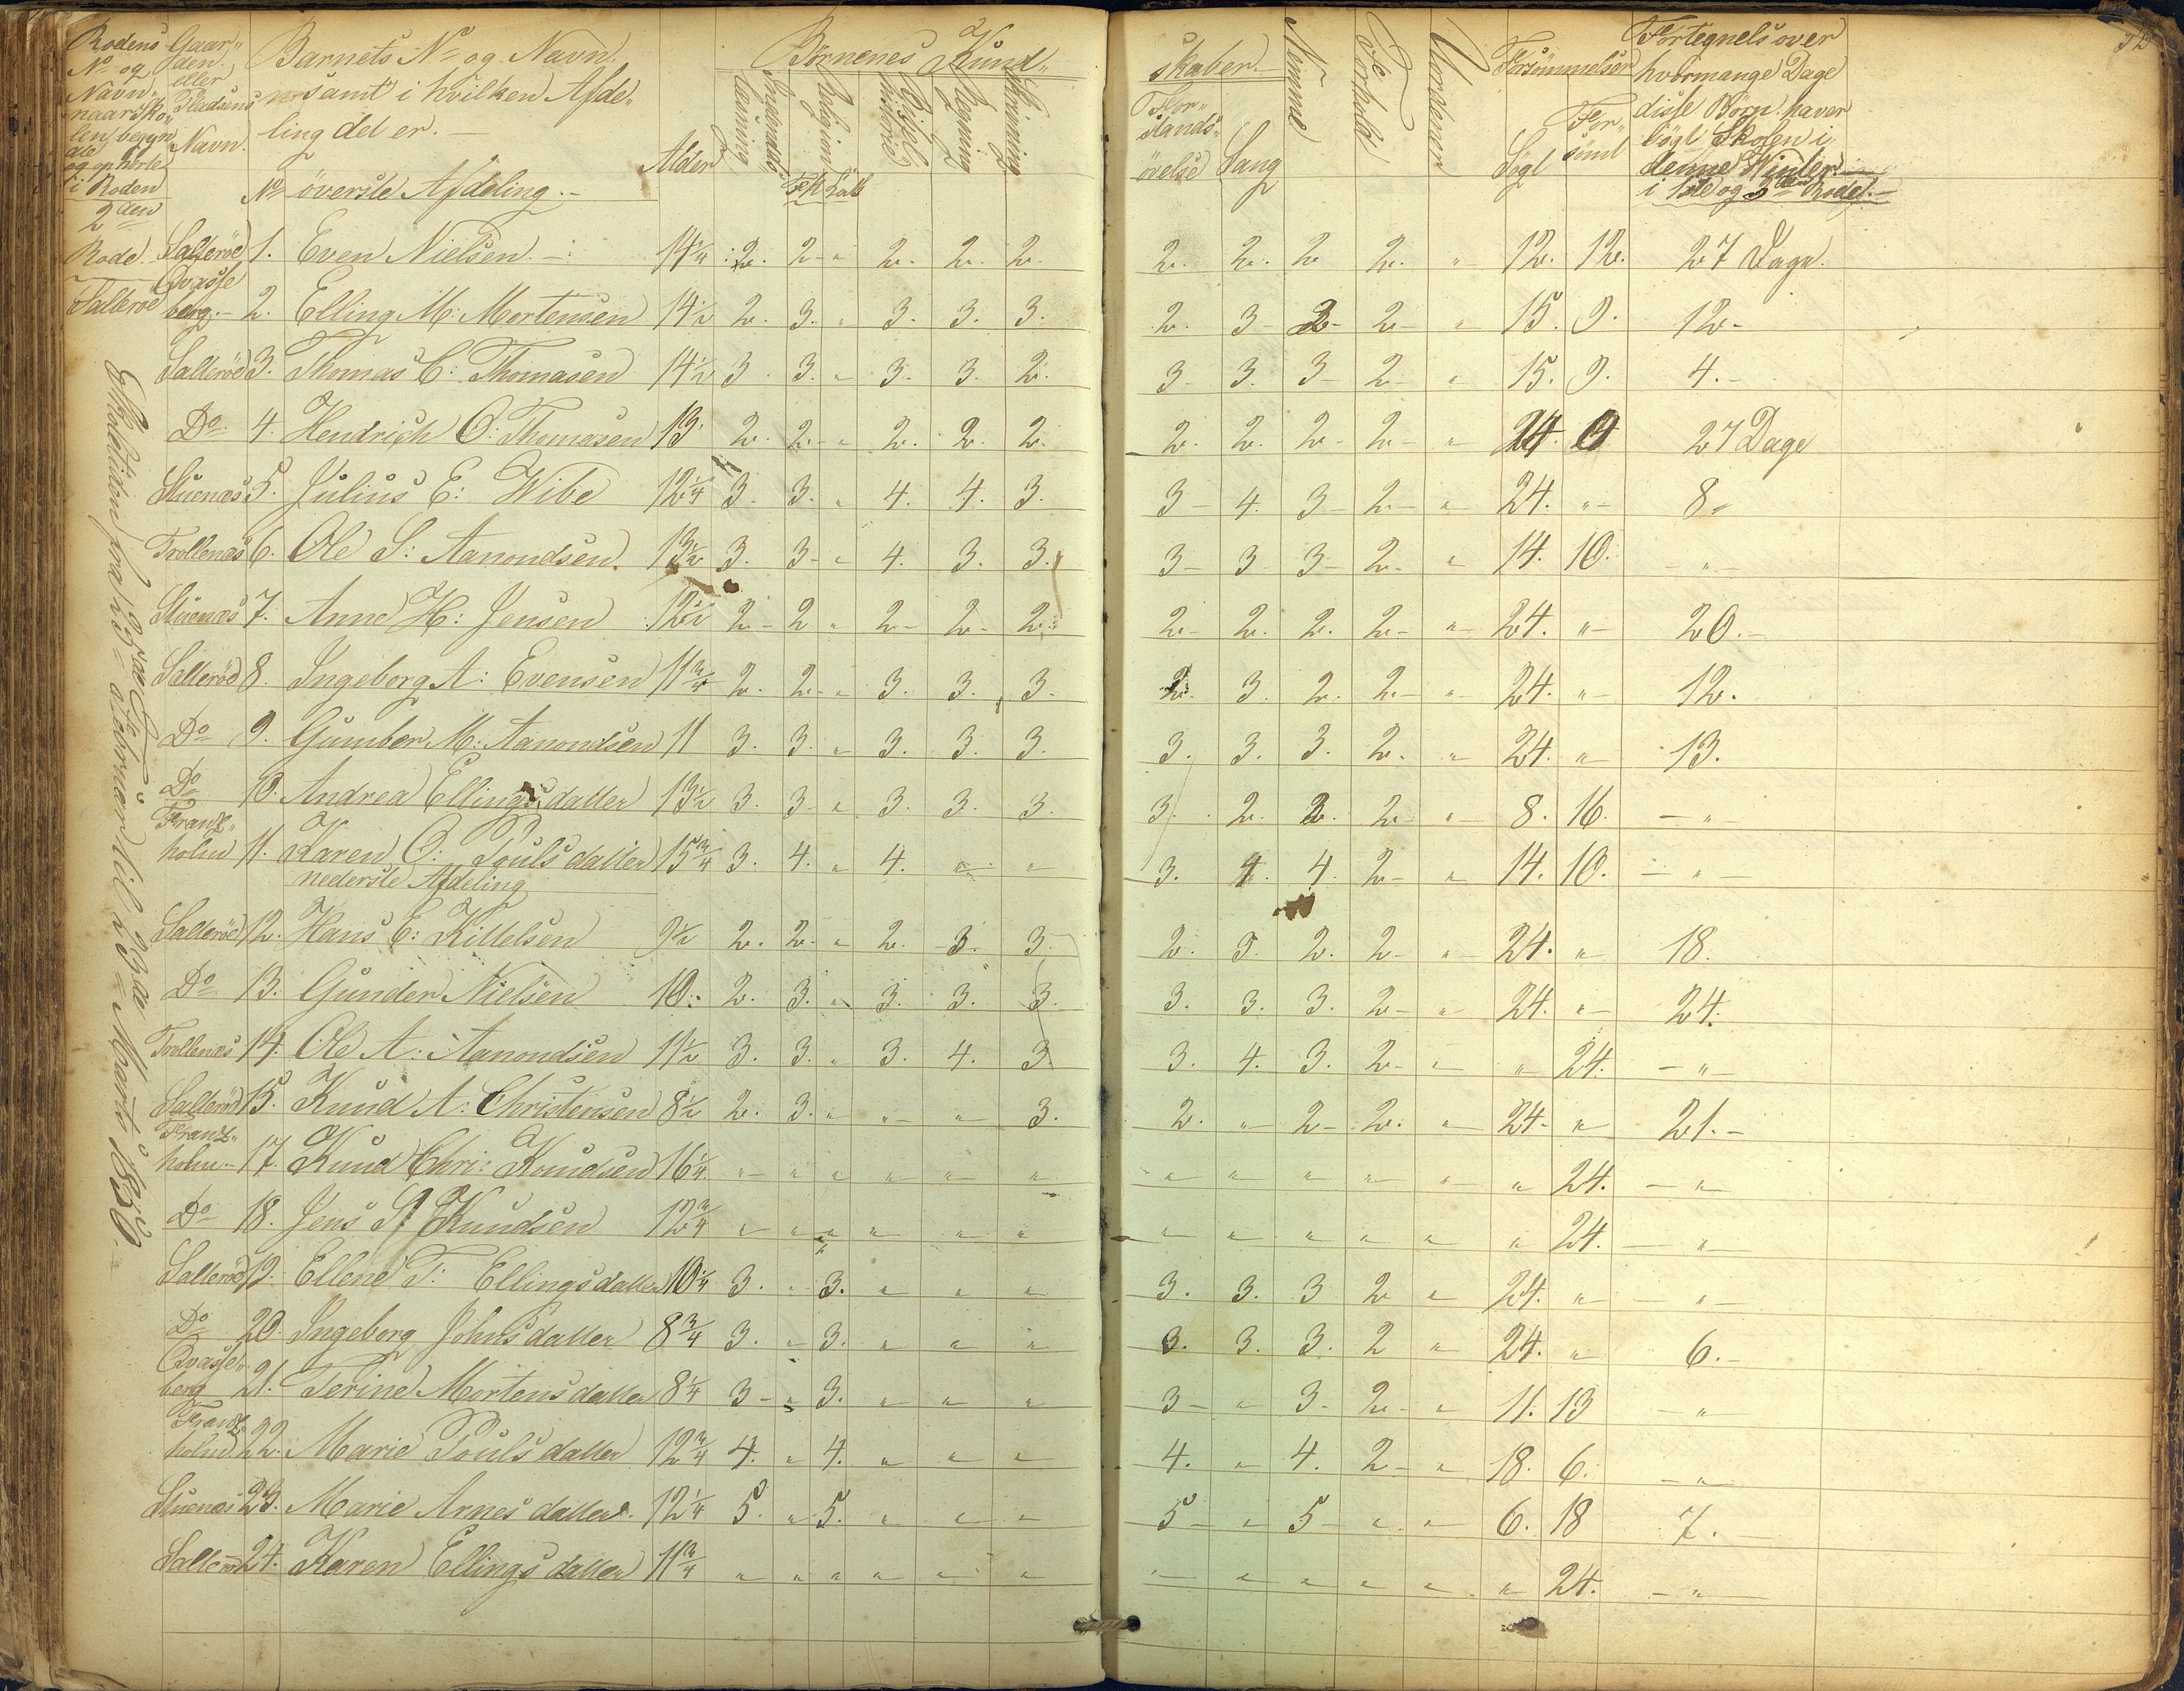 Rodens No og Navn, naar Skolen begyndte og ophørte i Roden
Gaarden eller Pladsens Navn.
Barnets No og Navn, samt i hvilken Afdeling det er. —
Alder
Börnenes Kundskaber.
Læsning
Religion
Bibl. historie
Regning
Skrivning
Forstandsövelse
Sang
Nemme
Forhold
Forsömmelser
Sögt
Forsömt
Fortegnelse over hvormange Dage disse Börn haver sögt Skolen i denne Winter i 1ste og 3die Rode. —
2den Rode. Salleröe
No överste Afdeling. —
Salleröe 1. Even Nielsen. — 14 1/4 2. 2 - " 2. 2. 2. 2. 2. 2 2. " 12. 12. 27 Dage.
Qvasseberg. - 2. Elling M: Mortensen 14 1/2 2. 3. " 3. 3. 3. 2. 3 - 2 - 2 - " 15. 9. 12 -
Salleröd 3. Thomas C: Thomasen 14 1/2 3. 3. " 3. 3. 2. 3 - 3. 3 - 2 - " 15. 9. 4. -
Do 4. Hendrich O: Thomasen 13 2. 2 - " 2. 2. 2. 2. 2. 2 - 2 - " 24. 27 Dage
Stuenæs 5. Julius E: Wibe 12 1/4 3. 3. " 4. 4. 3. 3 - 4. 3 - 2 - " 24. " - 8 "
Trollenæs 6. Ole S: Aanondsen. 13 1/2 3. 3 - " 4. 3. 3. 3 - 3 3 - 2 - " 14. 10. - " -
Stuenæs 7. Anne H: Jensen 12 1/2 2 - 2 " 2 - 2 - 2. 2 - 2. 2. 2 - " 24. " 20. -
Salleröd 8. Ingeborg A: Evensen 11 3/4 2. 2 - " 3. 3. 3. 2. 3. 2. 2 - " 24. " 12.
Do 9. Gumber M: Aanondsen 11 3. 3. " 3. 3. 3. 3. 3. 3. 2. " 24. " 13.
Do 10. Andrea Ellingsdatter 13 1/2 3. 3 - " 3. 3. 3. 3. 2. 2. 2 - " 8. 16. - " -
Franzholm 11. Karen O: Poulsdatter 15 3/4 3. 4. " 4. " " 3. 4. 4. 2 - " 14. 10. - " -
nederste Afdeling
Salleröd 12. Hans E: Kittelsen 9 1/2 2. 2. " 2. 3. 3. 2. 3. 2. 2 - " 24. " 18.
Do 13. Gunder Nielsen 10. 2. 3. " 3. 3. 3. 3. 3. 3. 2 - " 24. " 24.
Trollenæs 14. Ole A: Aanondsen 11 1/2 3. 3. " 3. 4. 3. 3. 4. 3. 2 - " " 24. - " -
Salleröd 15. Knud A: Christensen 8 1/2 2. 3. " " " 3. 2. " 2 - 2. " 24 - " 21. -
Franzholm - 17. Knud Chri: Knudsen 16 1/4 " " " " " " " " " " " " 24. - " -
Do 18. Jens Knudsen 12 3/4 " " " " " " " " " " " " 24. - " -
Salleröd 19. Ellene T: Ellingsdatter 10 1/4 3. " 3. " " " 3. 3. 3 2 " 24. " - " -
Do 20. Ingeborg Johnsdatter 8 3/4 3. " 3. " " " 3. 3. 3. 2 " 24. " 6. -
Qvasseberg 21. Terine Mortensdatter 8 1/4 3 - " 3. " " " 3 - " 3 - 2 - " 11. 13 - "
Franzholm 22. Marie Poulsdatter 12 3/4 4. " 4. " " " 4. " 4. 2 - " 18. 6. - "
Stuenæs 23. Marie Arnesdatter. 12 1/4 5. " 5. " " " 5 - " 5 - " " 6. 18 7. -
Salleröd 24. Karen Ellingsdatter 11 3/4 " " " " " " " " " " " " 24. - " -
Skoletiden fra 12te Februar til Marts 1856.